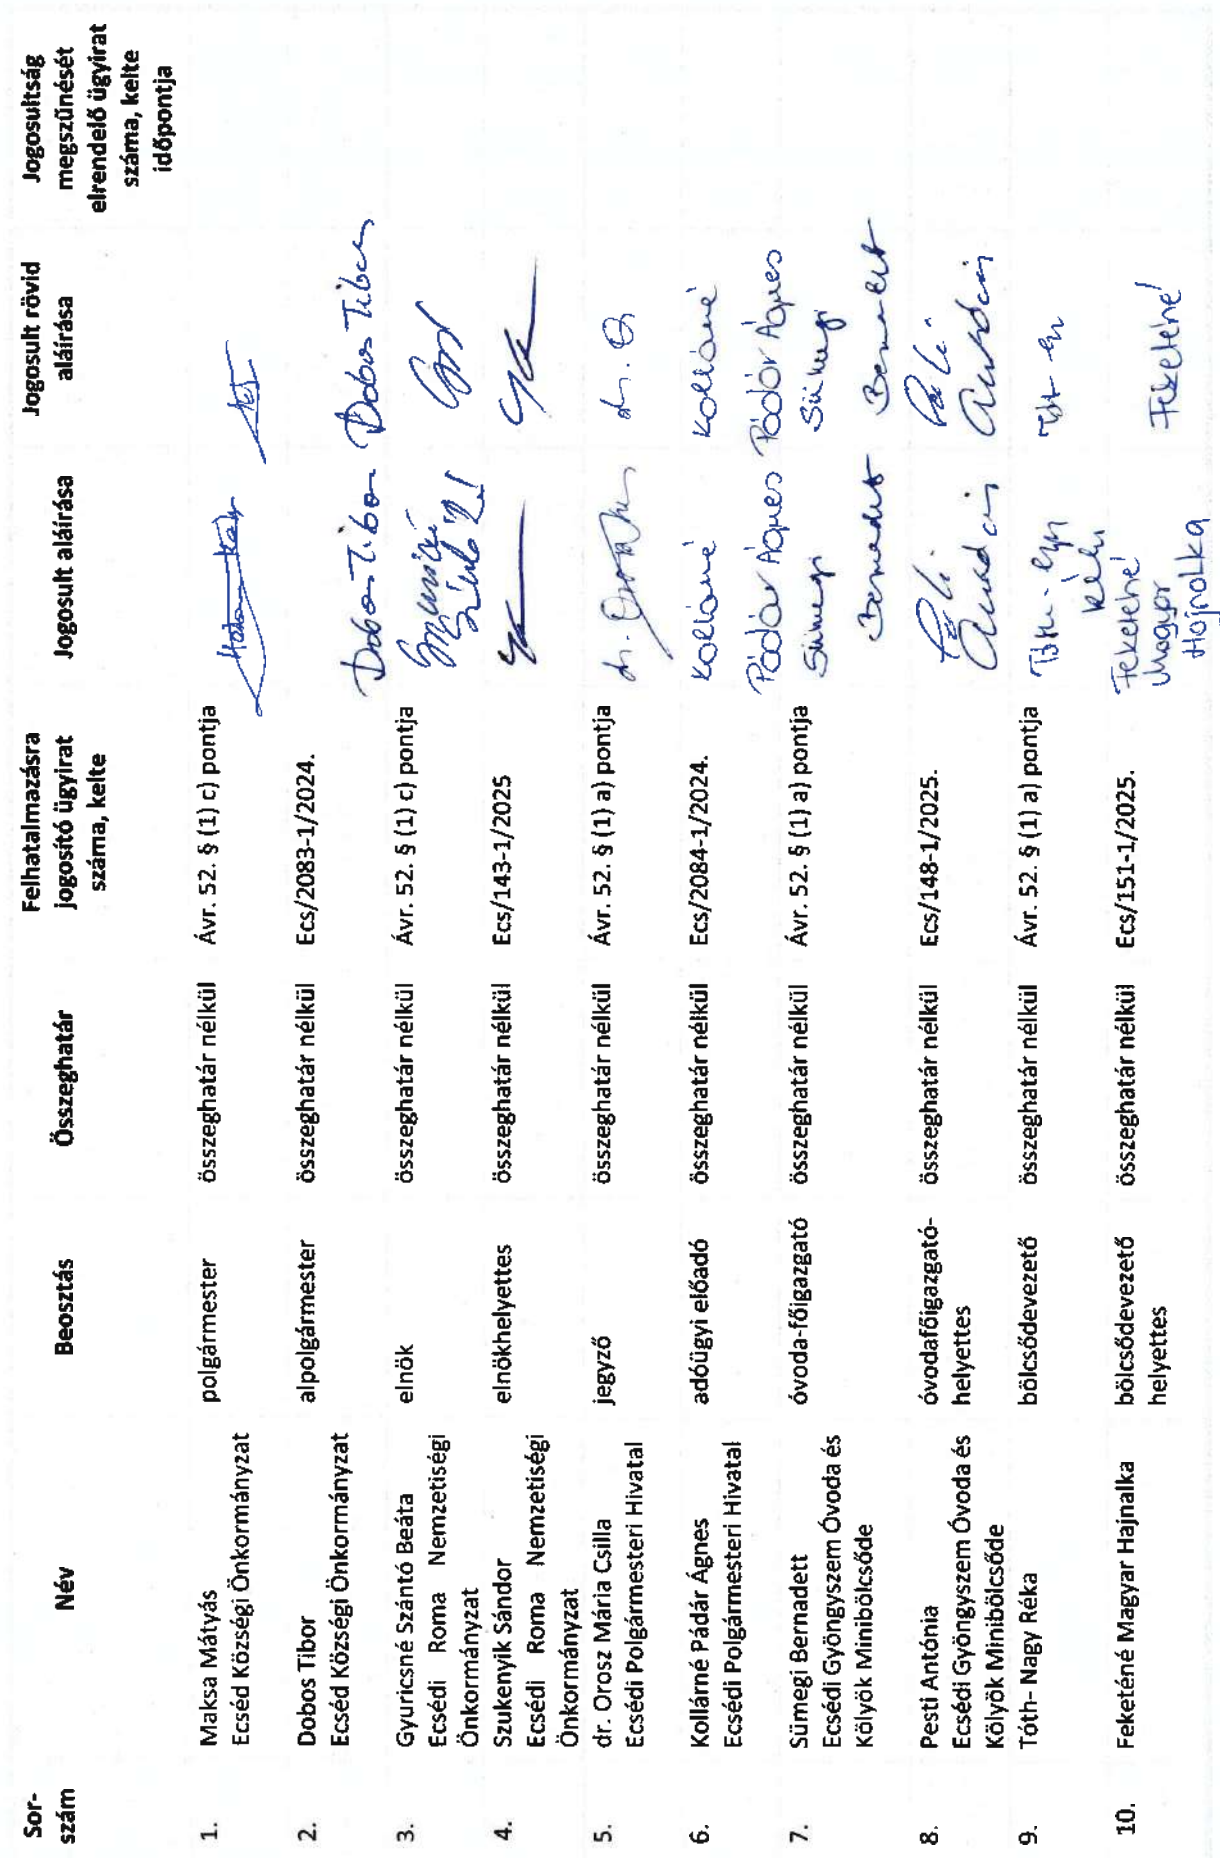 Sor-
szám
Név
Beosztás
Összeghatár
Felhatalmazásra
jogosító ügyirat
száma, kelte
Jogosult aláírása
Jogosult rövid
aláírása
Jogosultság
megszűnését
elrendelő ügyirat
száma, kelte
időpontja
1.
Maksa Mátyás
Ecséd Községi Önkormányzat
polgármester
összeghatár nélkül
Ávr. 52. § (1) c) pontja
2.
Dobos Tibor
Ecséd Községi Önkormányzat
alpolgármester
összeghatár nélkül
Ecs/2083-1/2024.
Dobos Tibor
Dobos Tibor
3.
Gyuricsné Szántó Beáta
Ecsédi Roma Nemzetiségi
Önkormányzat
elnök
összeghatár nélkül
Ávr. 52. § (1) c) pontja
4.
Szukenyik Sándor
Ecsédi Roma Nemzetiségi
Önkormányzat
elnökhelyettes
összeghatár nélkül
Ecs/143-1/2025
5.
dr. Orosz Mária Csilla
Ecsédi Polgármesteri Hivatal
jegyző
összeghatár nélkül
Ávr. 52. § (1) a) pontja
dr.
dr. O
6.
Kollárné Pádár Ágnes
Ecsédi Polgármesteri Hivatal
adóügyi előadó
összeghatár nélkül
Ecs/2084-1/2024.
Kollárné
Pádár Ágnes
Kollárné
Pádár Ágnes
7.
Sümegi Bernadett
Ecsédi Gyöngyszem Óvoda és
Kölyök Minibölcsőde
óvoda-főigazgató
összeghatár nélkül
Ávr. 52. § (1) a) pontja
Sümegi
Bernadett
Sümegi
Bernadett
8.
Pesti Antónia
Ecsédi Gyöngyszem Óvoda és
Kölyök Minibölcsőde
óvodafőigazgató-
helyettes
összeghatár nélkül
Ecs/148-1/2025.
9.
Tóth- Nagy Réka
bölcsődevezető
összeghatár nélkül
Ávr. 52. § (1) a) pontja
10.
Feketéné Magyar Hajnalka
bölcsődevezető
helyettes
összeghatár nélkül
Ecs/151-1/2025.
Feketéné
Magyar
Hajnalka
Feketéné